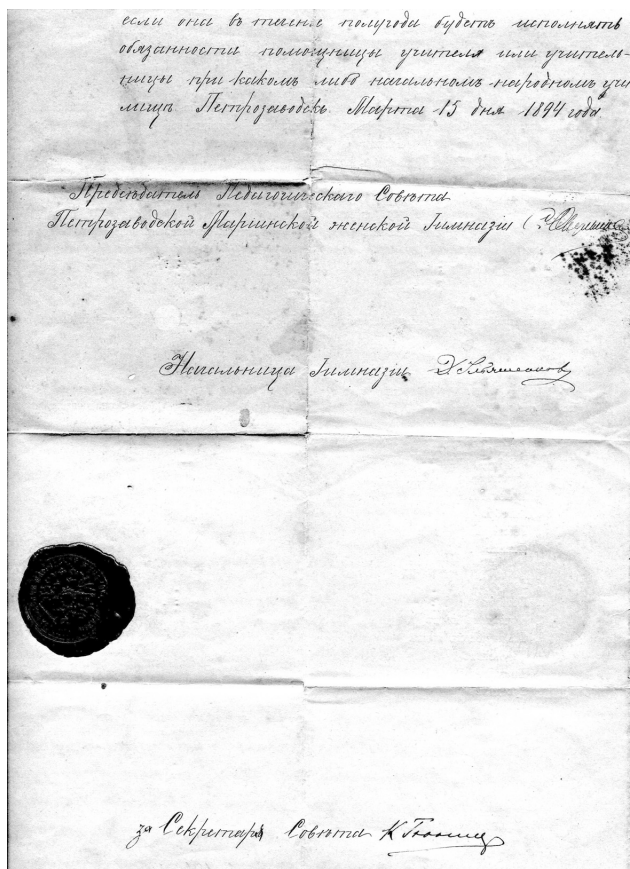 если она въ теченіе полугода будетъ исполнять
обязанности помощницы учителя или учитель-
ницы при каком либо начальномъ народномъ учи
лищѣ Петрозаводскъ Марта 15 дня 1894 года.
Предсѣдатель Педагогическаго Совѣта
Петрозаводской Маріинской женской Гимназіи
Начальница Гимназіи
за Секретаря Совѣта К